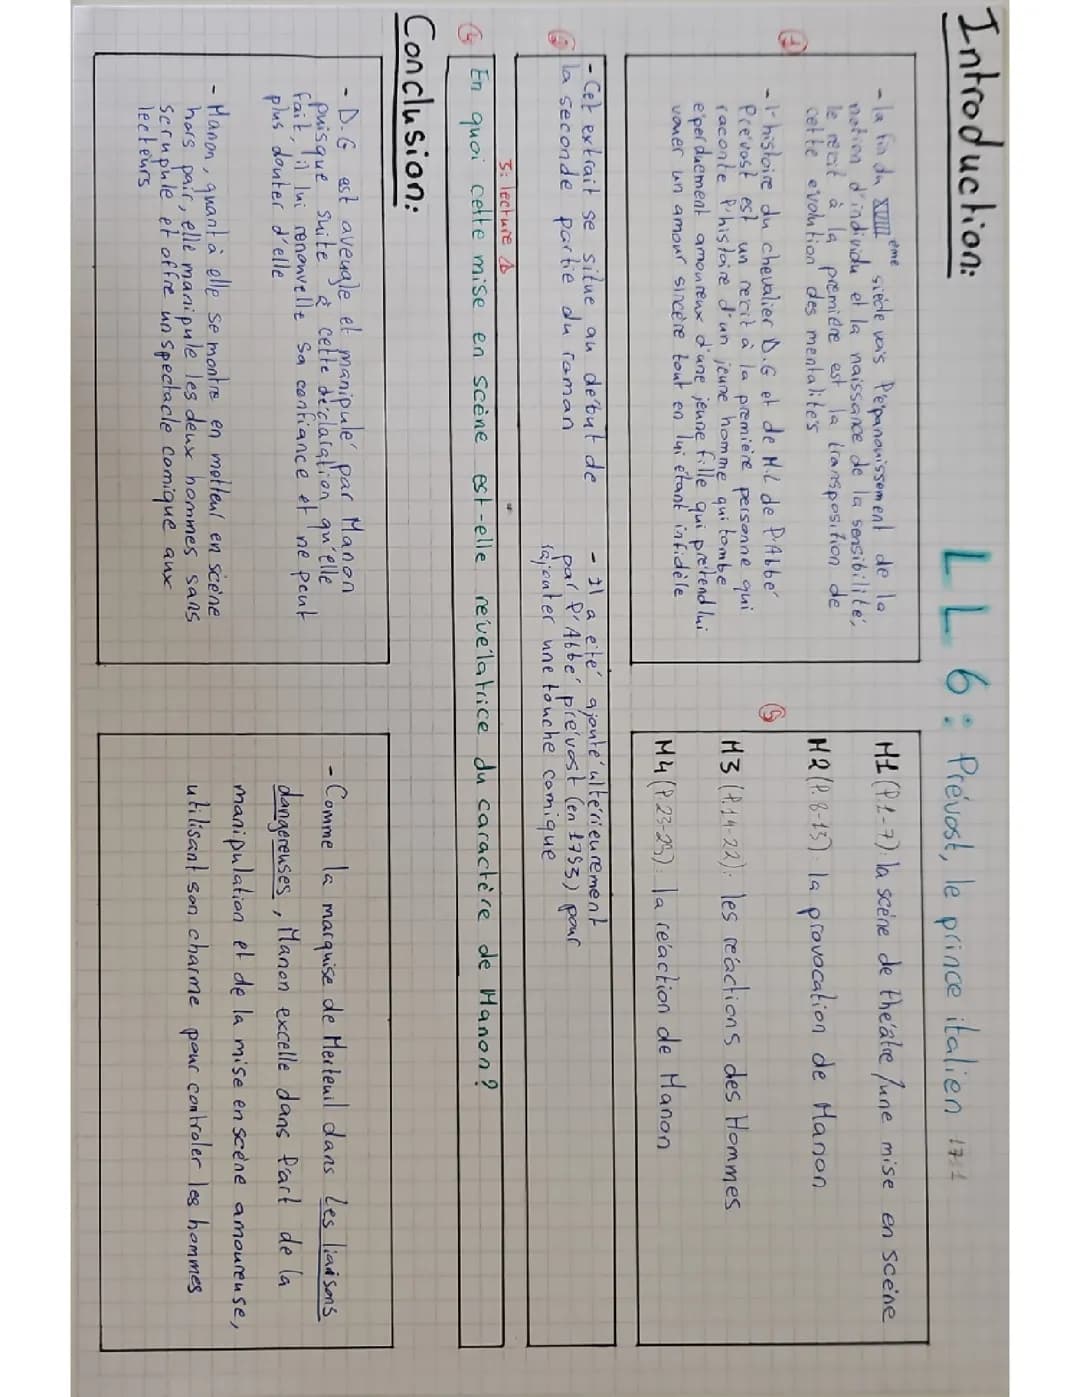 LL6: Prévost, le prince italien 1731
Introduction:
①
- la fin du XVIIIème siècle vers l'épanouissement de la
notion d'individu et la naissance de la sensibilité,
le récit à la première est la transposition de
cette évolution des mentalités
- l'histoire du chevalier D.G et de M.L de l'Abbé
Prévost est un récit à la première personne qui
raconte l'histoire d'un jeune homme qui tombe
éperduement amoureux d'une jeune fille qui prétend lui
vouer un amour sincère tout en lui étant infidèle
⑤
M1 (l.1-7): la scène de théâtre/une mise en scène
M2 (l.8-13): la provocation de Manon
M3 (l.14-22): les réactions des Hommes
M4 (l.23-29): la réaction de Manon
②
- Cet extrait se situe au début de
la seconde partie du roman
- Il a été ajouté ultérieurement
par l'Abbé prévost (en 1753) pour
rajouter une touche comique
3: lecture
④ En quoi cette mise en scène est-elle révélatrice du caractère de Manon?
Conclusion:
- D.G est aveugle et manipulé par Manon
puisque suite à cette déclaration qu'elle
fait, il lui renouvelle sa confiance et ne peut
plus douter d'elle
- Manon, quant à elle se montre en metteur en scène
hors pair, elle manipule les deux hommes sans
scrupule et offre un spectacle comique aux
lecteurs
- Comme la marquise de Merteuil dans les liaisons
dangereuses, Manon excelle dans l'art de la
manipulation et de la mise en scène amoureuse,
utilisant son charme pour controler les hommes